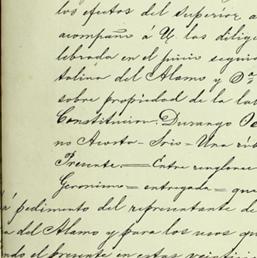 los efectos del superior a
acompaño a U. las dilige
lebrada en el juicio seguid
talina del Alamo y Dª
sobre propiedad de la la
Constitucion. Durango Oc
no Acosta - Srio - Una rúb
Presente = Entre renglones
Geronimo = entregada = que
á pedimento del representante de
a del Alamo y para los usos qu
ndo el presente en estas veintici